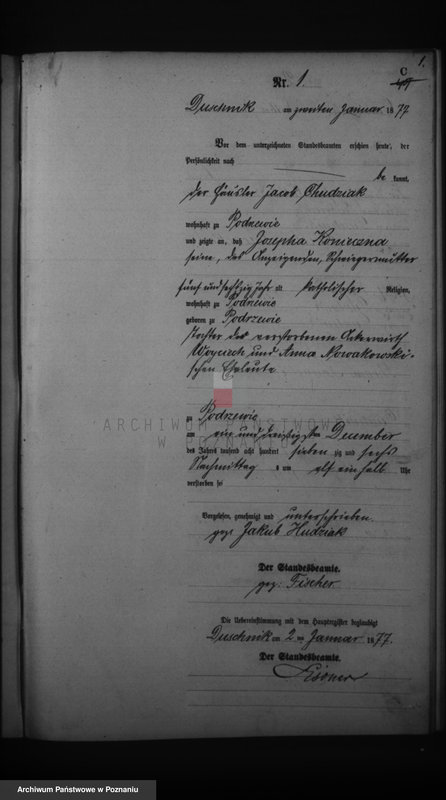 1.
C
Nr. 1.
Duschnik am zweiten Januar 1877
Vor dem unterzeichneten Standesbeamten erschien heute, der
Persönlichkeit nach
be kannt,
der Häusler Jacob Chudziak
wohnhaft zu Podrzewie
und zeigte an, daß Josepha Konieczna
seine, des Anzeigenden, Schwiegermutter
fünf und sechzig Jahr alt katholischer Religion,
wohnhaft zu Podrzewie
geboren zu Podrzewie
Tochter des verstorbenen Ackerwirth
Woyciech und Anna Nowakowski-
schen Eheleute
zu Podrzewie
am ein und dreißigsten December
des Jahres tausend acht hundert sieben zig und sechs
Nachmittag s um elf ein halb Uhr
verstorben sei
Vorgelesen, genehmigt und unterschrieben
gez. Jakub Hudziak
Der Standesbeamte.
gez. Fischer
Die Uebereinstimmung mit dem Hauptregister beglaubigt
Duschnik am 2 ten Januar 1877.
Der Standesbeamte.
Fischer
ARCHIWUM PAŃSTWOWE
W POZNANIU
Archiwum Państwowe w Poznaniu